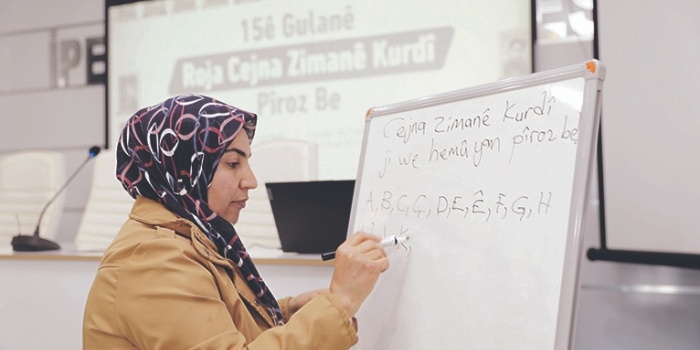 15ê Gulanê
Roja Cejna Zimanê Kurdî
Piroz Be
Cejna Zimanê Kurdî
ji we hemûyan pîroz be
A, B, C, Ç, D, E, Ê, F, G, H